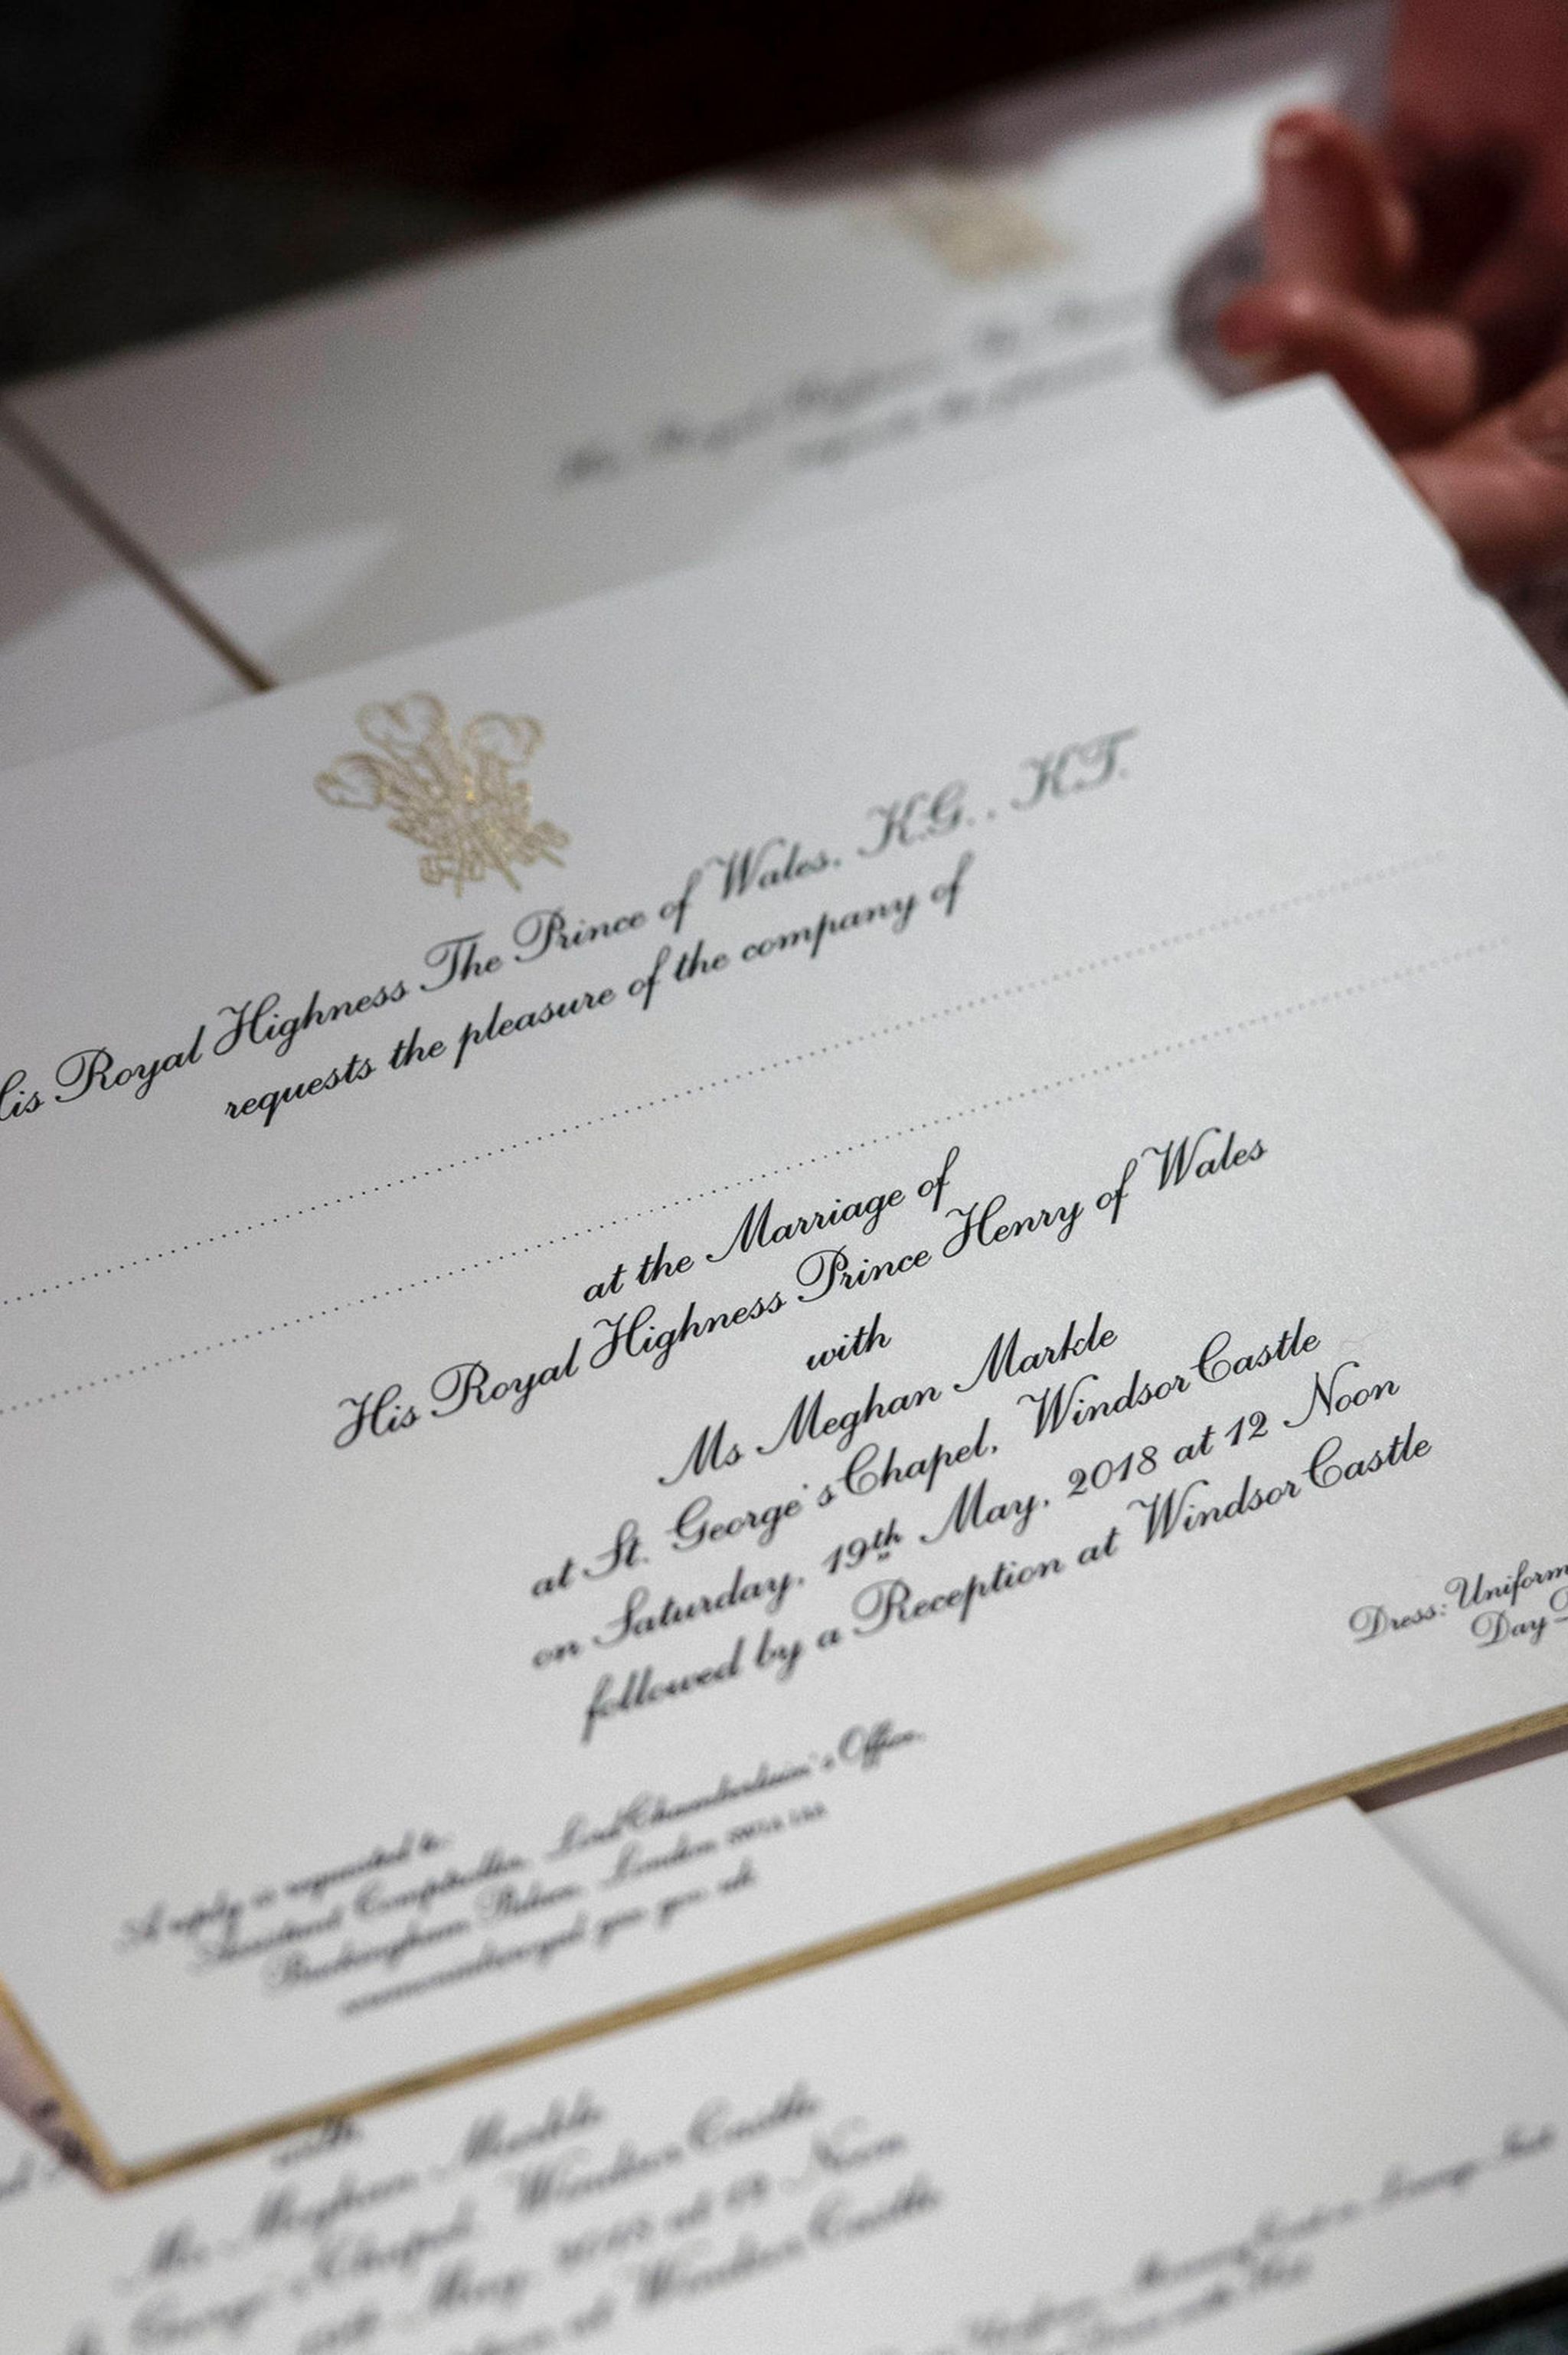 is Royal Highness The Prince of Wales, K.G., K.T.
requests the pleasure of the company of
at the Marriage of
His Royal Highness Prince Henry of Wales
with
Ms Meghan Markle
at St. George's Chapel, Windsor Castle
on Saturday, 19th May, 2018 at 12 Noon
followed by a Reception at Windsor Castle
Dress: Uniform
Day
A reply is requested to:
Assistant Comptroller, Lord Chamberlain's Office,
Buckingham Palace, London
with
Ms Meghan Markle
George's Chapel, Windsor Castle
May, 2018 at 12 Noon
at Windsor Castle